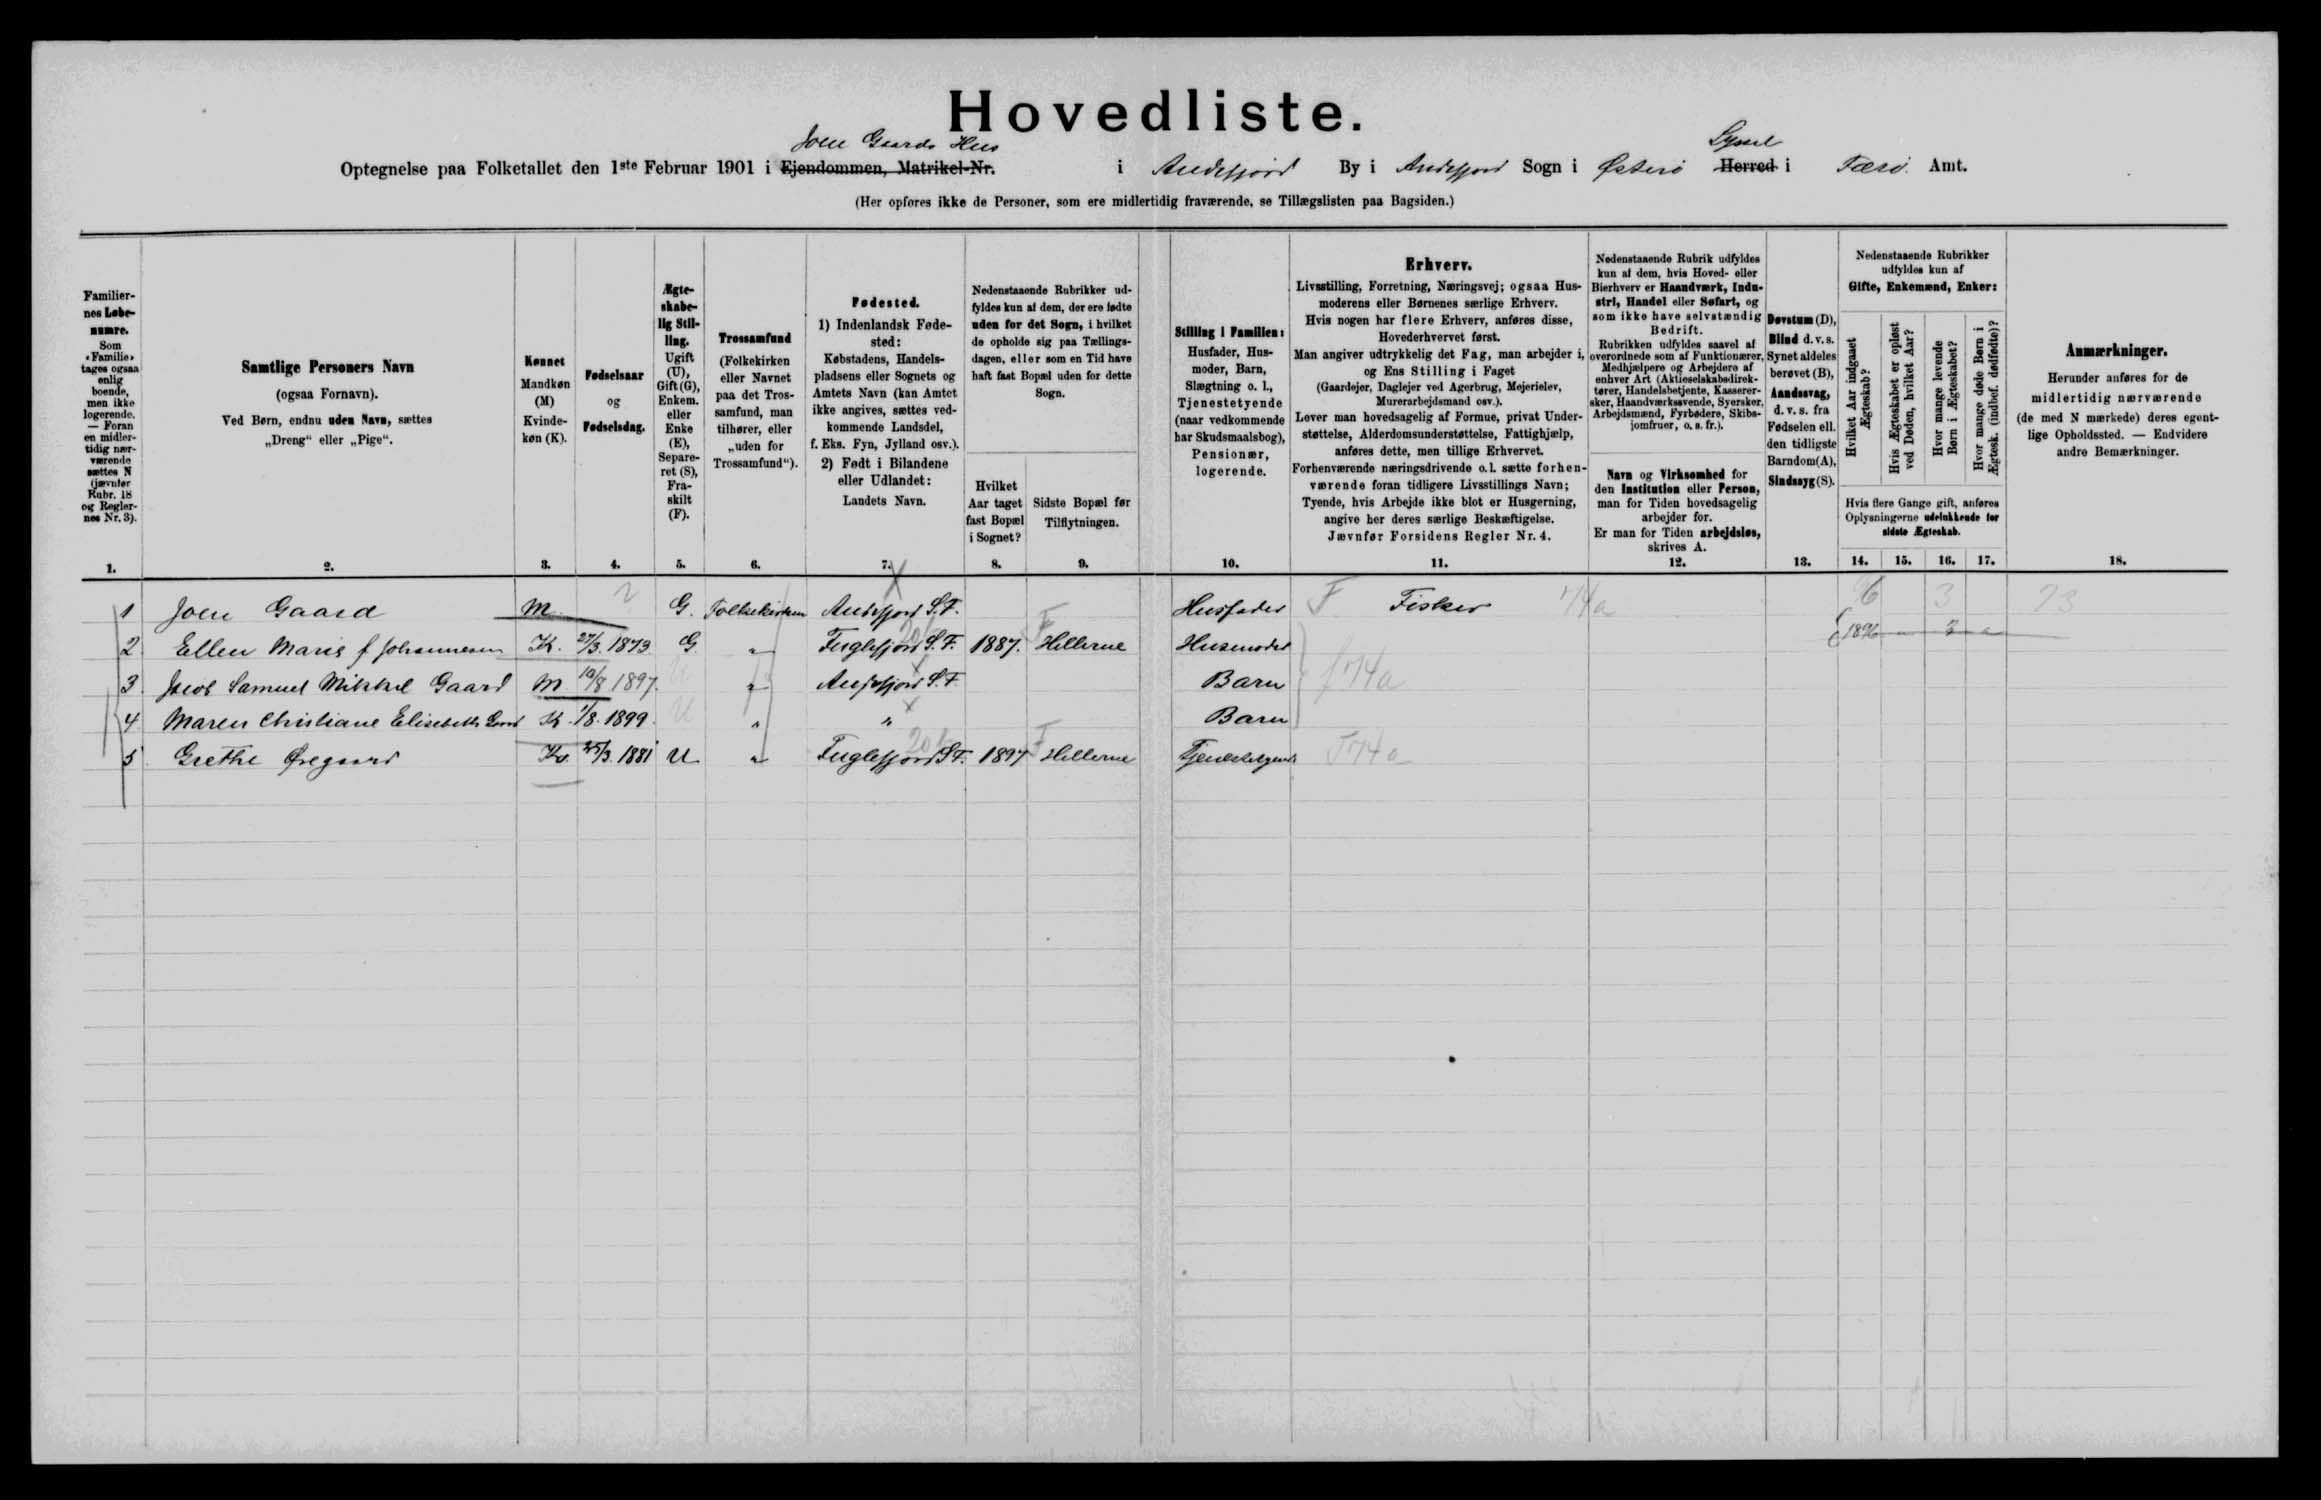 Hovedliste.
Joen Gaards Hus
Syssel
Optegnelse paa Folketallet den 1ste Februar 1901 i Ejendommen, Matrikel-Nr. i Andefjord By i Andefjord Sogn i Østerø Herred i Færø. Amt.
(Her opføres ikke de Personer, som ere midlertidig fraværende, se Tillægslisten paa Bagsiden.)
Familier-
nes Løbe-
numre.
Som
«Familie»
tages ogsaa
enlig
boende,
men ikke
logerende.
— Foran
en midler-
tidig nær-
værende
sættes N
(jævnfør
Rubr. 18
og Regler-
nes Nr. 3).
1.
Samtlige Personers Navn
(ogsaa Fornavn).
Ved Børn, endnu uden Navn, sættes
„Dreng“ eller „Pige“.
2.
Kønnet
Mandkøn
(M)
Kvinde-
køn (K).
3.
Fødselsaar
og
Fødselsdag.
4.
Ægte-
skabe-
lig Stil-
ling.
Ugift
(U),
Gift (G),
Enkem.
eller
Enke
(E),
Separe-
ret (S),
Fra-
skilt
(F).
5.
Trossamfund
(Folkekirken
eller Navnet
paa det Tros-
samfund, man
tilhører, eller
„uden for
Trossamfund“).
6.
Fødested.
1) Indenlandsk Føde-
sted:
Købstadens, Handels-
pladsens eller Sognets og
Amtets Navn (kan Amtet
ikke angives, sættes ved-
kommende Landsdel,
f. Eks. Fyn, Jylland osv.).
2) Født i Bilandene
eller Udlandet:
Landets Navn.
7.
Nedenstaaende Rubrikker ud-
fyldes kun af dem, der ere fødte
uden for det Sogn, i hvilket
de opholde sig paa Tællings-
dagen, eller som en Tid have
haft fast Bopæl uden for dette
Sogn.
Hvilket
Aar taget
fast Bopæl
i Sognet?
8.
Sidste Bopæl før
Tilflytningen.
9.
Stilling i Familien:
Husfader, Hus-
moder, Barn,
Slægtning o. l.,
Tjenestetyende
(naar vedkommende
har Skudsmaalsbog),
Pensionær,
logerende.
10.
Erhverv.
Livsstilling, Forretning, Næringsvej; ogsaa Hus-
moderens eller Børnenes særlige Erhverv.
Hvis nogen har flere Erhverv, anføres disse,
Hovederhvervet først.
Man angiver udtrykkelig det Fag, man arbejder i,
og Ens Stilling i Faget
(Gaardejer, Daglejer ved Agerbrug, Mejerielev,
Murerarbejdsmand osv.).
Lever man hovedsagelig af Formue, privat Under-
støttelse, Alderdomsunderstøttelse, Fattighjælp,
anføres dette, men tillige Erhvervet.
Forhenværende næringsdrivende o. l. sætte forhen-
værende foran tidligere Livsstillings Navn;
Tyende, hvis Arbejde ikke blot er Husgerning,
angive her deres særlige Beskæftigelse.
Jævnfør Forsidens Regler Nr. 4.
11.
Nedenstaaende Rubrik udfyldes
kun af dem, hvis Hoved- eller
Bierhverv er Haandværk, Indu-
stri, Handel eller Søfart, og
som ikke have selvstændig
Bedrift.
Rubrikken udfyldes saavel af
overordnede som af Funktionærer,
Medhjælpere og Arbejdere af
enhver Art (Aktieselskabsdirek-
tører, Handelsbetjente, Kasserer-
sker, Haandværkssvende, Syersker,
Arbejdsmænd, Fyrbødere, Skibs-
jomfruer, o. s. fr.).
Navn og Virksomhed for
den Institution eller Person,
man for Tiden hovedsagelig
arbejder for.
Er man for Tiden arbejdsløs,
skrives A.
12.
Døvstum (D),
Blind d. v. s.
Synet aldeles
berøvet (B),
Aandssvag,
d. v. s. fra
Fødselen ell.
den tidligste
Barndom (A),
Sindssyg (S).
13.
Nedenstaaende Rubrikker
udfyldes kun af
Gifte, Enkemænd, Enker:
Hvilket Aar indgaaet
Ægteskab?
Hvis Ægteskabet er opløst
ved Døden, hvilket Aar?
Hvor mange levende
Børn i Ægteskabet?
Hvor mange døde Børn i
Ægtesk. (indbef. dødfødte)?
Hvis flere Gange gift, anføres
Oplysningerne udelukkende for
sidste Ægteskab.
14. 15. 16. 17.
Anmærkninger.
Herunder anføres for de
midlertidig nærværende
(de med N mærkede) deres egent-
lige Opholdssted. — Endvidere
andre Bemærkninger.
18.
1 Joen Gaard M. ? G. Folkekirken Andefjord S.F. Husfader F Fisker 74a 3 23
2 Ellen Marie f. Johannesen K. 27/3. 1873 G. " Fuglefjord S.F. 1887. Hellerne Husmoder 1896 " 3 "
3 Jacob Samuel Mikkel Gaard M. 10/8. 1897. U " Andefjord S.F. Barn f 74a
4 Maren Christiane Elisebeth Gaard K. 1/8. 1899. U " " Barn
5 Grethe Øregaard K. 25/3. 1881 U " Fuglefjord S.F. 1897 Hellerne Tjenestetyende F 74a